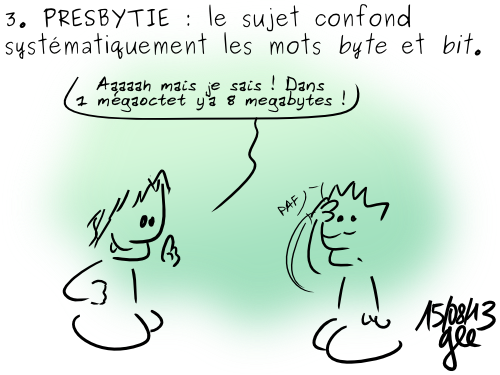 3. PRESBYTIE : le sujet confond
systématiquement les mots byte et bit.
Aaaaah mais je sais ! Dans
1 mégaoctet y'a 8 megabytes !
PAF
15/08/13
gee